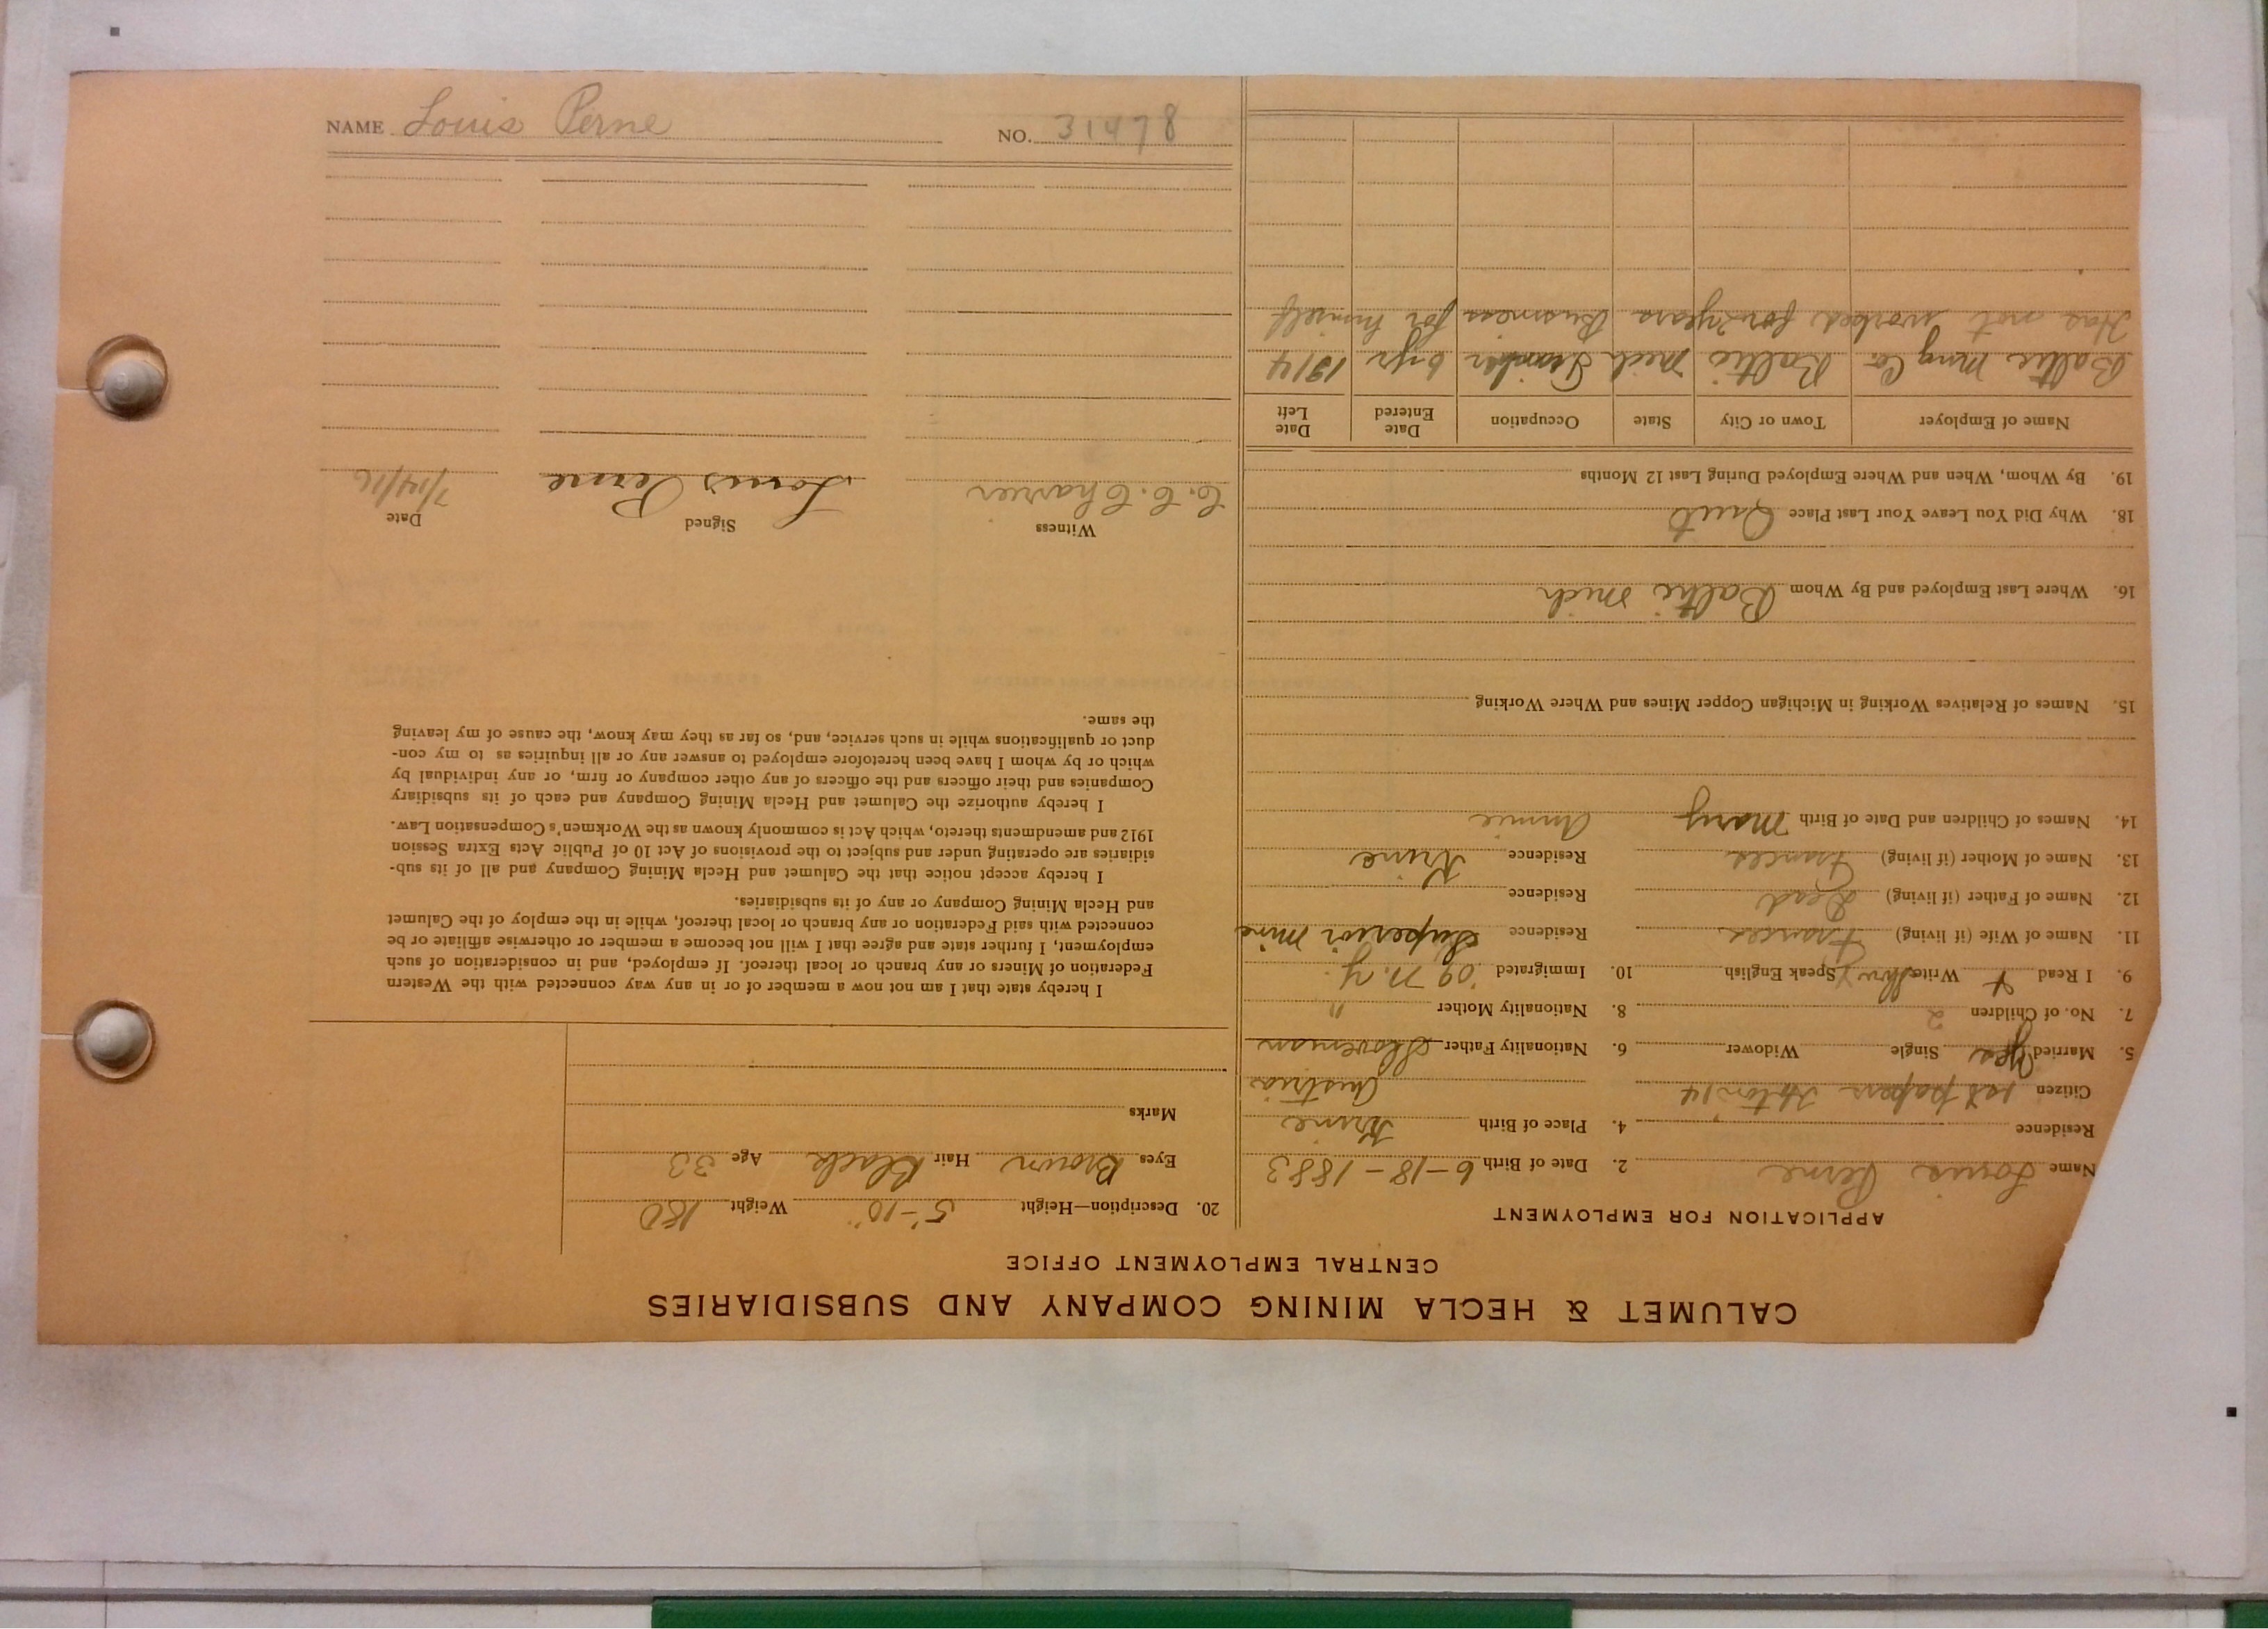 CALUMET & HECLA MINING COMPANY AND SUBSIDIARIES
CENTRAL EMPLOYMENT OFFICE
APPLICATION FOR EMPLOYMENT
Name Louis Perne 2. Date of Birth 6-18-1883
Residence 4. Place of Birth Krine
Citizen 1st papers Hoton 14 Austria
5. Married Yes Single Widower 6. Nationality Father Slovenian
7. No. of Children 2 8. Nationality Mother "
9. I Read Write Speak English 10. Immigrated '09 N.Y.
11. Name of Wife (if living) Frances Residence Superior Mine
12. Name of Father (if living) Dead Residence
13. Name of Mother (if living) Frances Residence Krine
14. Names of Children and Date of Birth Mary Annie
15. Names of Relatives Working in Michigan Copper Mines and Where Working
16. Where Last Employed and By Whom Baltic Mich
18. Why Did You Leave Your Last Place Quit
19. By Whom, When and Where Employed During Last 12 Months
Name of Employer Town or City State Occupation Date Entered Date Left
Baltic Mng Co Baltic Mich 6 yrs 1914
Has not worked for 2 years Business for himself
20. Description—Height 5'-10" Weight 180
Eyes Brown Hair Black Age 33
Marks
I hereby state that I am not now a member of or in any way connected with the Western
Federation of Miners or any branch or local thereof. If employed, and in consideration of such
employment, I further state and agree that I will not become a member or otherwise affiliate or be
connected with said Federation or any branch or local thereof, while in the employ of the Calumet
and Hecla Mining Company or any of its subsidiaries.
I hereby accept notice that the Calumet and Hecla Mining Company and all of its sub-
sidiaries are operating under and subject to the provisions of Act 10 of Public Acts Extra Session
1912 and amendments thereto, which Act is commonly known as the Workmen's Compensation Law.
I hereby authorize the Calumet and Hecla Mining Company and each of its subsidiary
Companies and their officers and the officers of any other company or firm, or any individual by
which or by whom I have been heretofore employed to answer any or all inquiries as to my con-
duct or qualifications while in such service, and, so far as they may know, the cause of my leaving
the same.
Witness Signed Date
C. C. Charrer Louis Perne 7/14/16
NAME Louis Perne NO. 31478